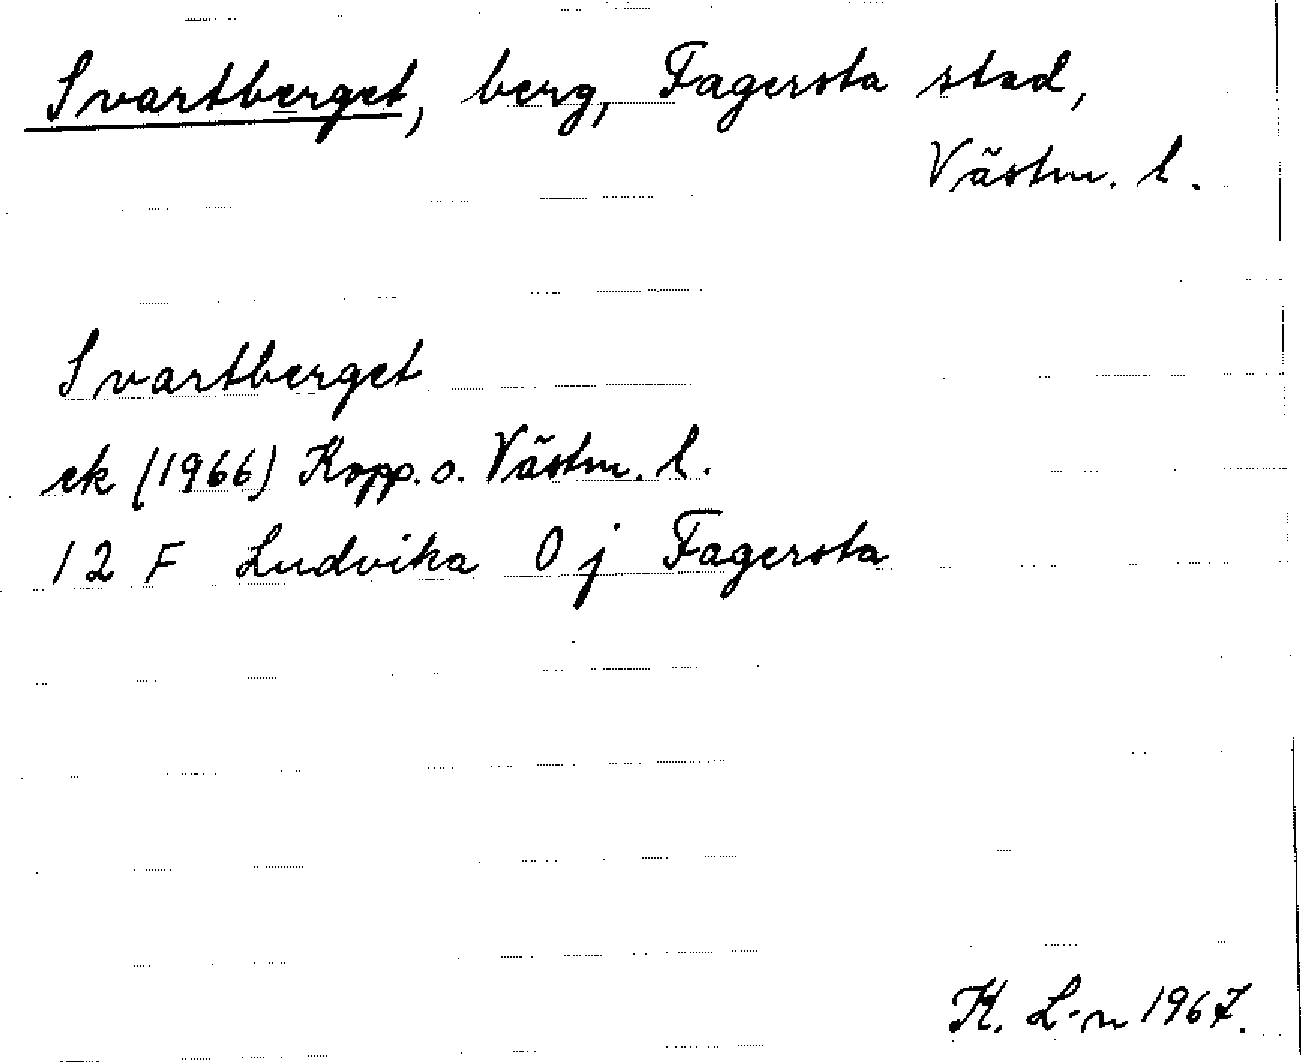 Svartberget, berg, Fagersta stad,
Västm. l.
Svartberget
ek (1966) Kopp. o. Västm. l.
12 F Ludvika 0 j Fagersta
K. L-n 1967.